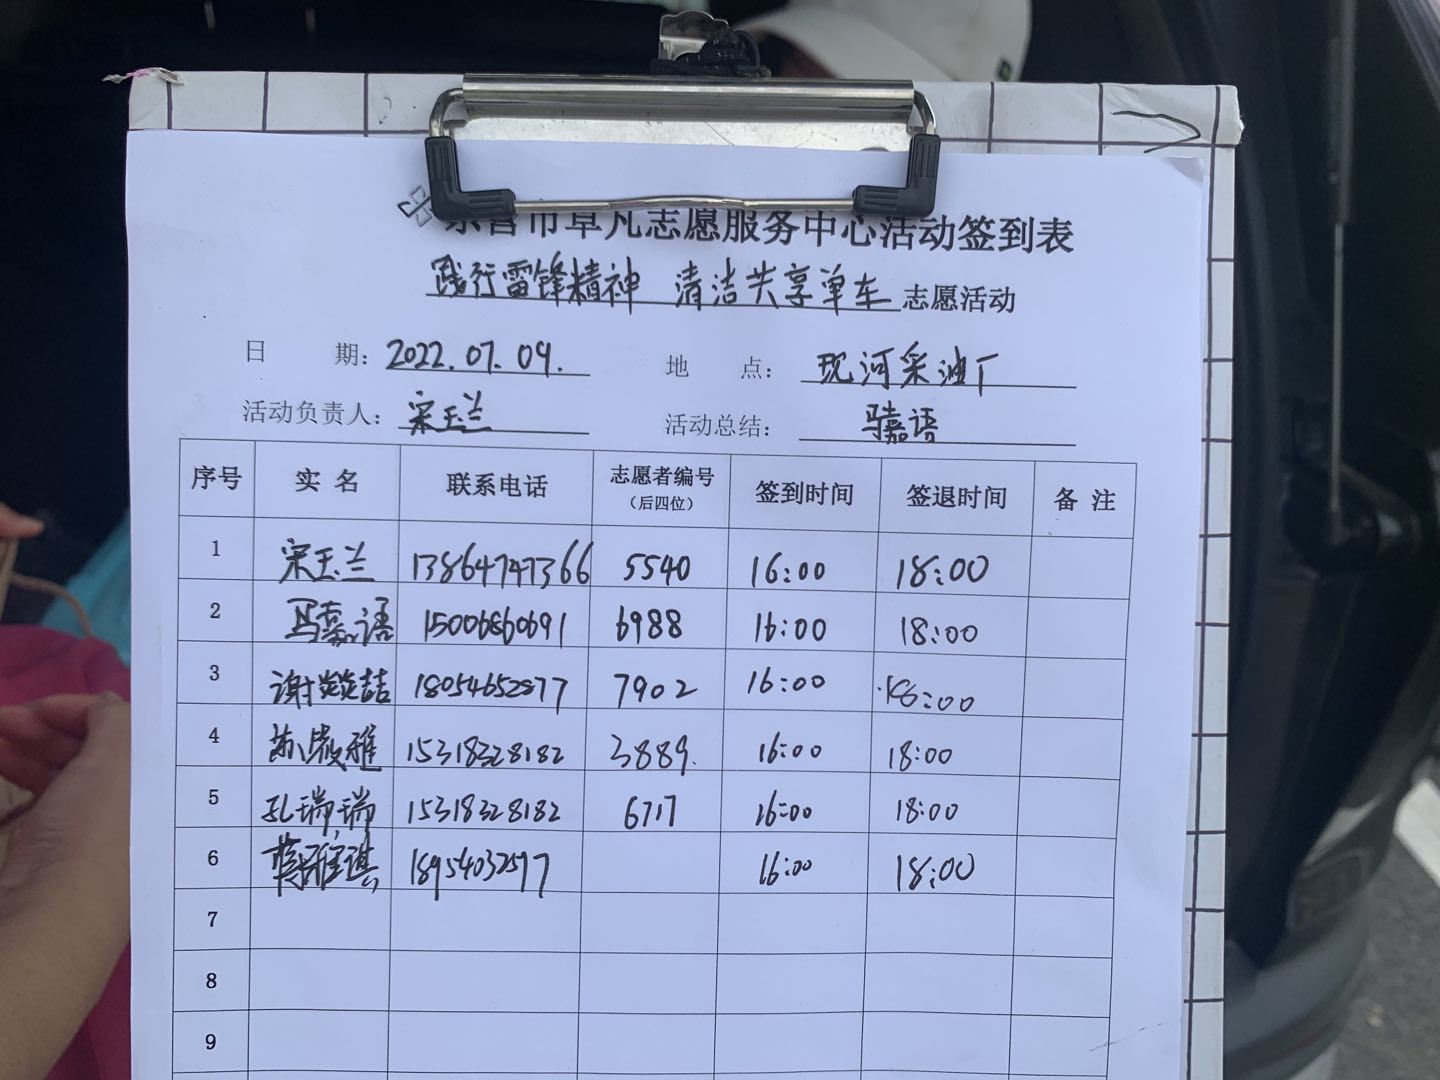 东营市草凡志愿服务中心活动签到表
践行雷锋精神 清洁共享单车 志愿活动
日 期: 2022.07.09. 地 点: 现河采油厂
活动负责人: 宋玉兰 活动总结: 马嘉语
序号 实 名 联系电话 志愿者编号 (后四位) 签到时间 签退时间 备 注
1 宋玉兰 13864747366 5540 16:00 18:00
2 马嘉语 15006860691 6988 16:00 18:00
3 谢燚喆 18054652877 7902 16:00 18:00
4 15318328182 3889. 16:00 18:00
5 孔瑞瑞 15318328182 6717 16:00 18:00
6 18954032577 16:00 18:00
7
8
9